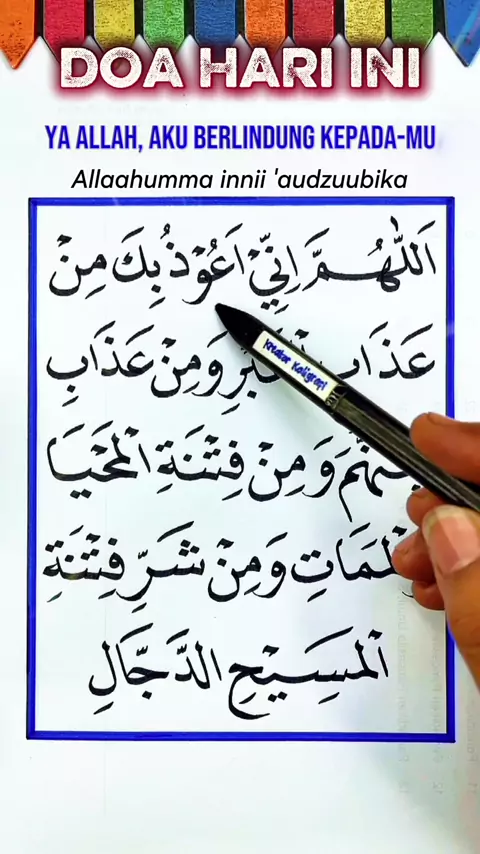 DOA HARI INI
YA ALLAH, AKU BERLINDUNG KEPADA-MU
Allaahumma innii 'audzuubika
اَللّٰهُمَّ اِنِّيْ اَعُوْذُ بِكَ مِنْ
وَمِنْ عَذَابِ
وَمِنْ فِتْنَةِ الْمَحْيَا
وَمِنْ شَرِّ فِتْنَةِ
الْمَسِيْحِ الدَّجَّالِ
Kreator Kaligrafi